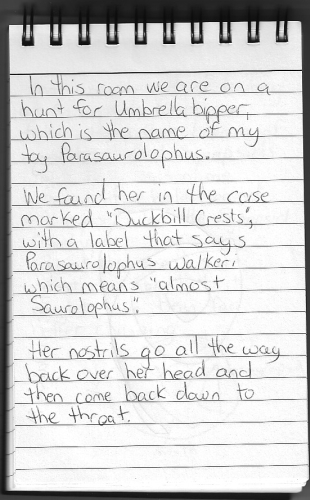 In this room we are on a
hunt for Umbrellabipper,
which is the name of my
toy Parasaurolophus.
We found her in the case
marked "Duckbill Crests",
with a label that says
Parasaurolophus walkeri
which means "almost
Saurolophus".
Her nostrils go all the way
back over her head and
then come back down to
the throat.